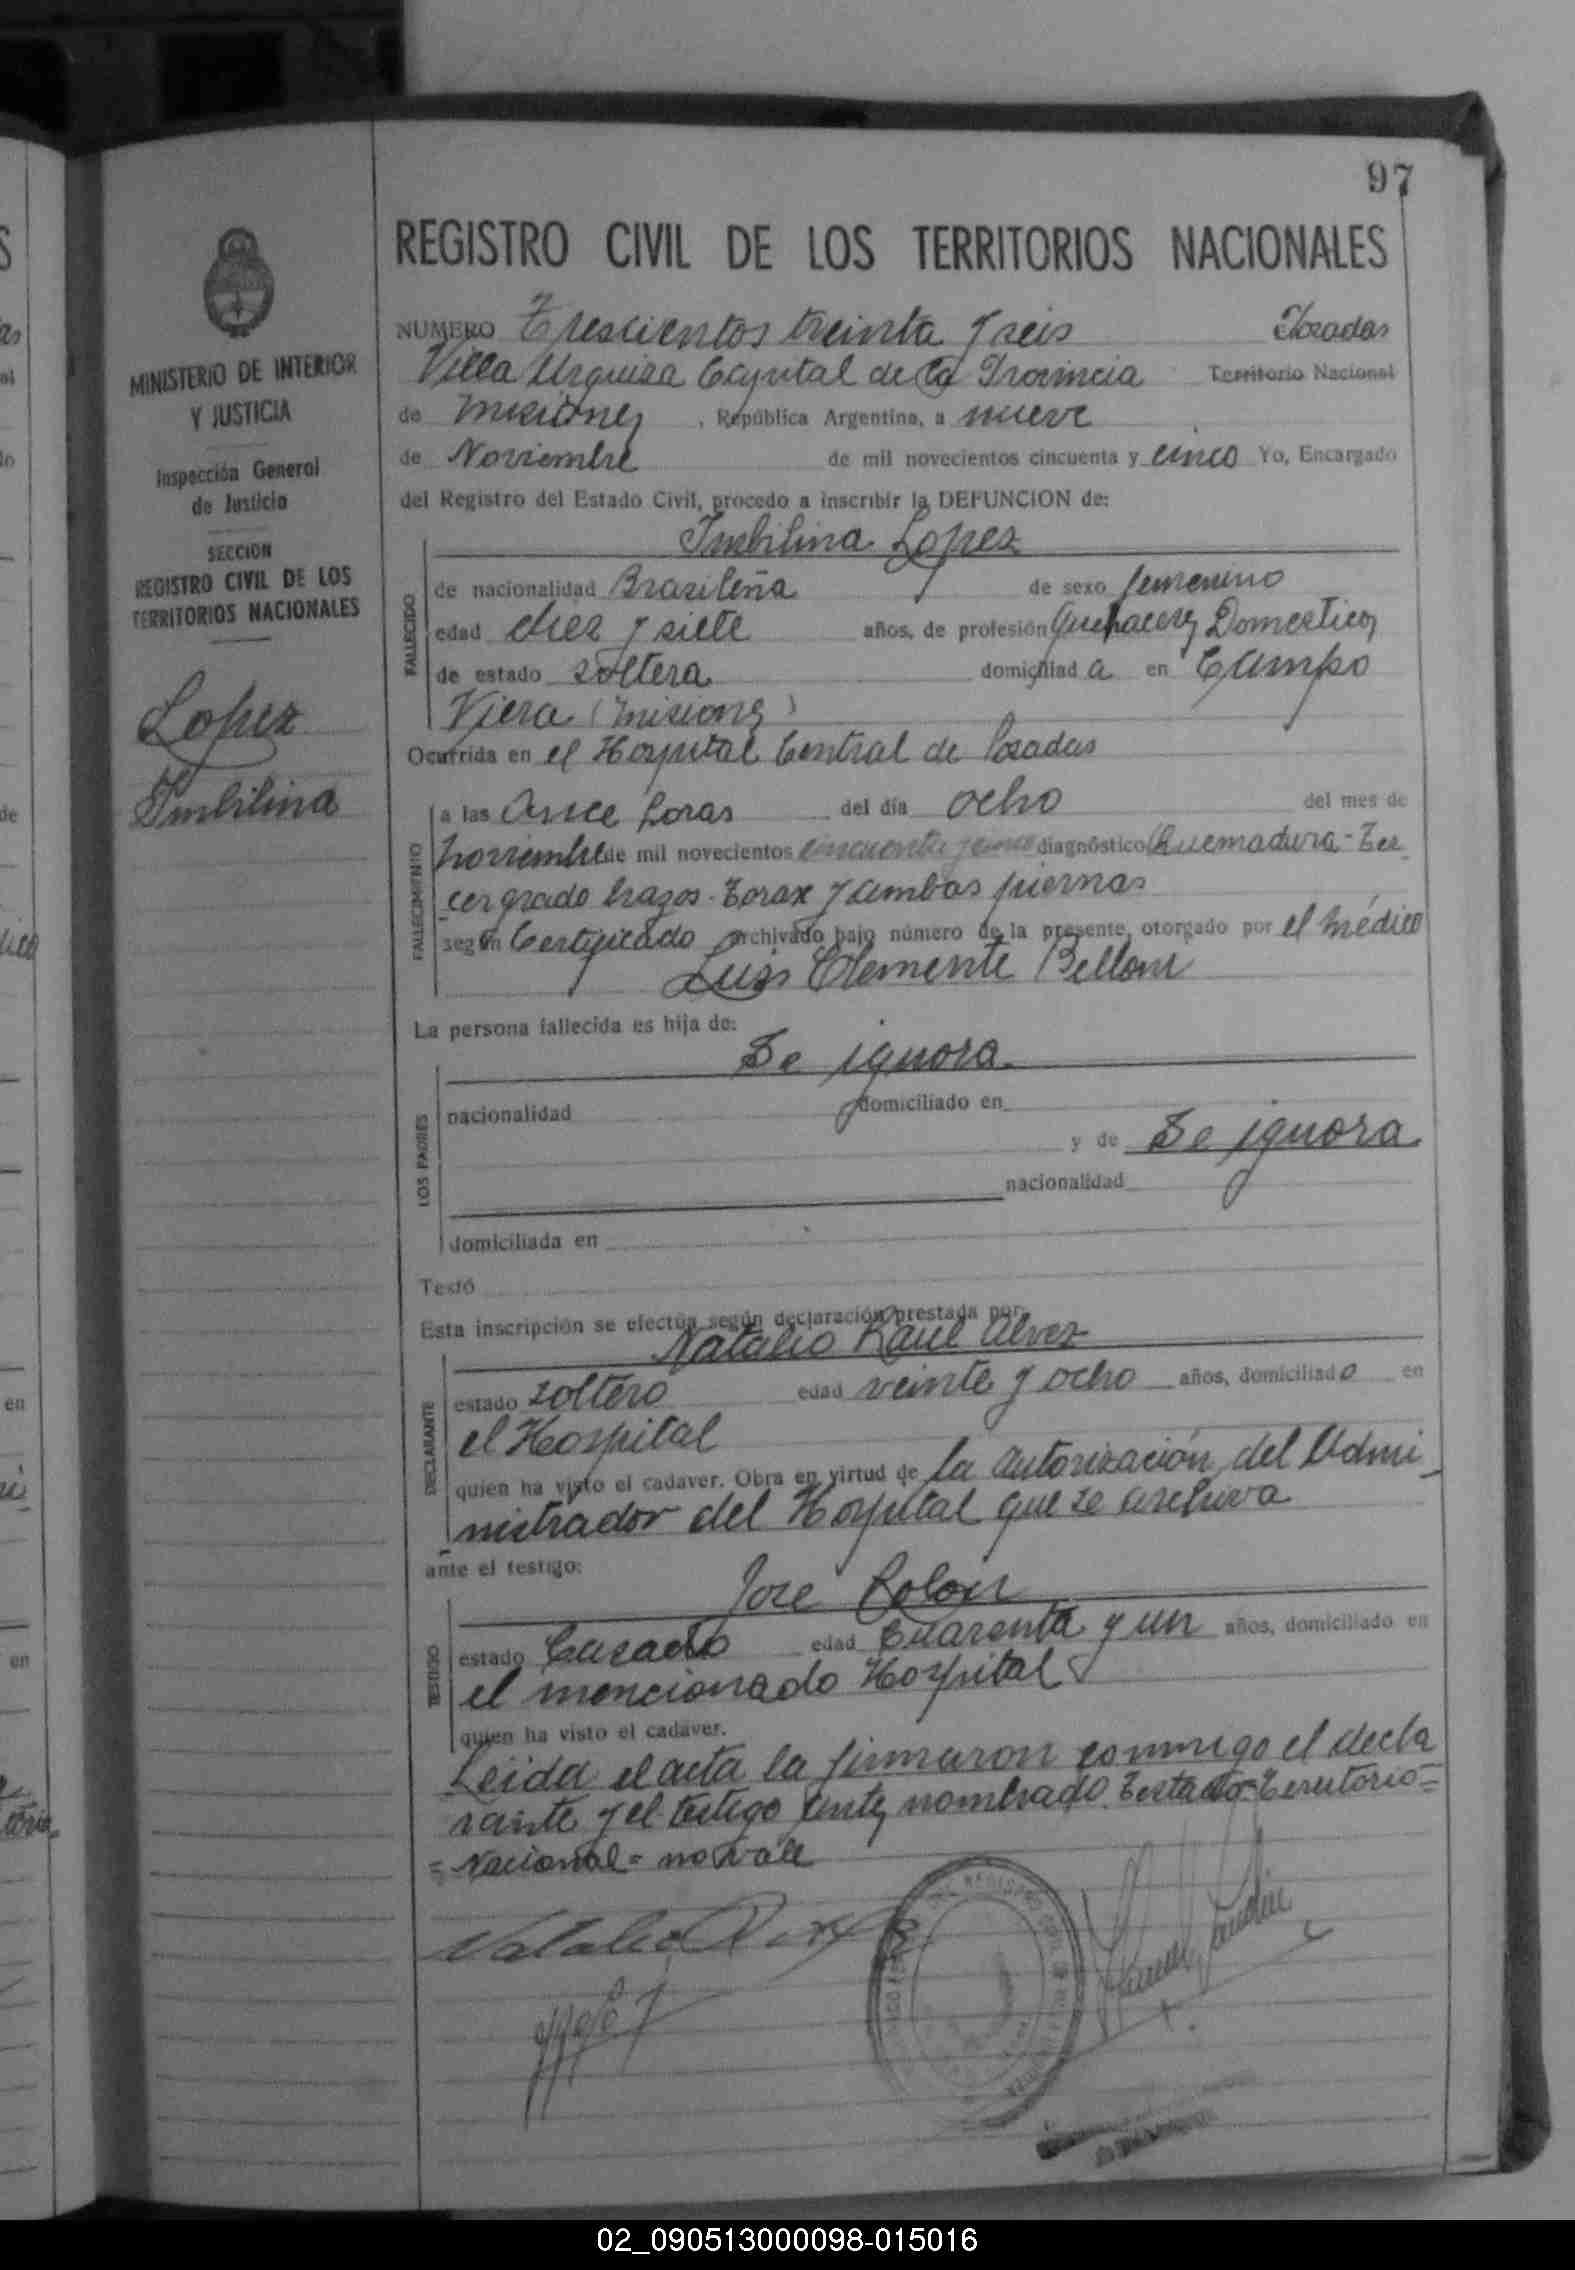 97
REGISTRO CIVIL DE LOS TERRITORIOS NACIONALES
MINISTERIO DE INTERIOR
Y JUSTICIA
Inspección General
de Justicia
SECCION
REGISTRO CIVIL DE LOS
TERRITORIOS NACIONALES
Lopez
Imbilina
NUMERO Trescientos treinta y seis Posadas
Villa Urquiza Capital de la Provincia Territorio Nacional
de Misiones, República Argentina, a nueve
de Noviembre de mil novecientos cincuenta y cinco Yo, Encargado
del Registro del Estado Civil, procedo a inscribir la DEFUNCION de:
Imbilina Lopez
FALLECIDO
de nacionalidad Brasileña de sexo femenino
edad diez y siete años, de profesión Quehaceres Domesticos
de estado soltera domiciliad a en Campo
Viera (Misiones)
Ocurrida en el Hospital Central de Posadas
FALLECIMIENTO
a las once horas del día ocho del mes de
noviembre de mil novecientos cincuenta y cinco diagnóstico Quemadura - Ter
cer grado brazos - Torax y ambas piernas
según Certificado archivado bajo número de la presente, otorgado por el médico
Luis Clemente Belloni
La persona fallecida es hija de:
Se ignora
LOS PADRES
nacionalidad domiciliado en
y de Se ignora
nacionalidad
domiciliada en
Testó
Esta inscripción se efectúa según declaración prestada por:
Natalio Raul Alvez
DECLARANTE
estado soltero edad veinte y ocho años, domiciliado en
el Hospital
quien ha visto el cadaver. Obra en virtud de la autorización del Admi_
nistrador del Hospital que se archiva
ante el testigo:
Jose Colon
TESTIGO
estado Casado edad Cuarenta y un años, domiciliado en
el mencionado Hospital
quien ha visto el cadáver.
Leida el acta la firmaron conmigo el decla
rante y el testigo antes nombrado. Testado = Territorio =
= Nacional = no vale
Natalio R
02_090513000098-015016